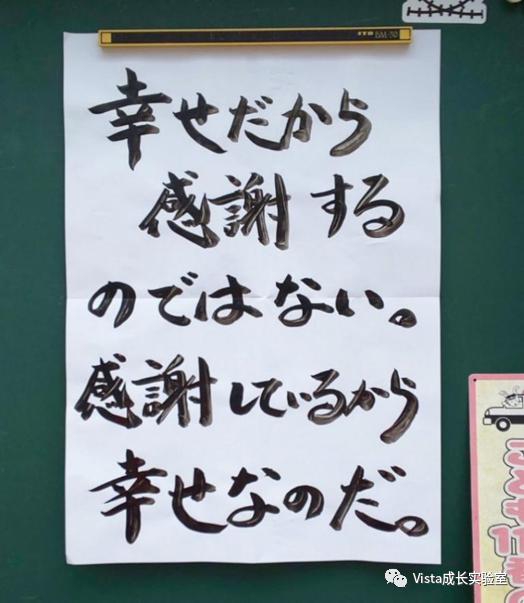 幸せだから
感謝する
のではない。
感謝しているから
幸せなのだ。
Vista成长实验室